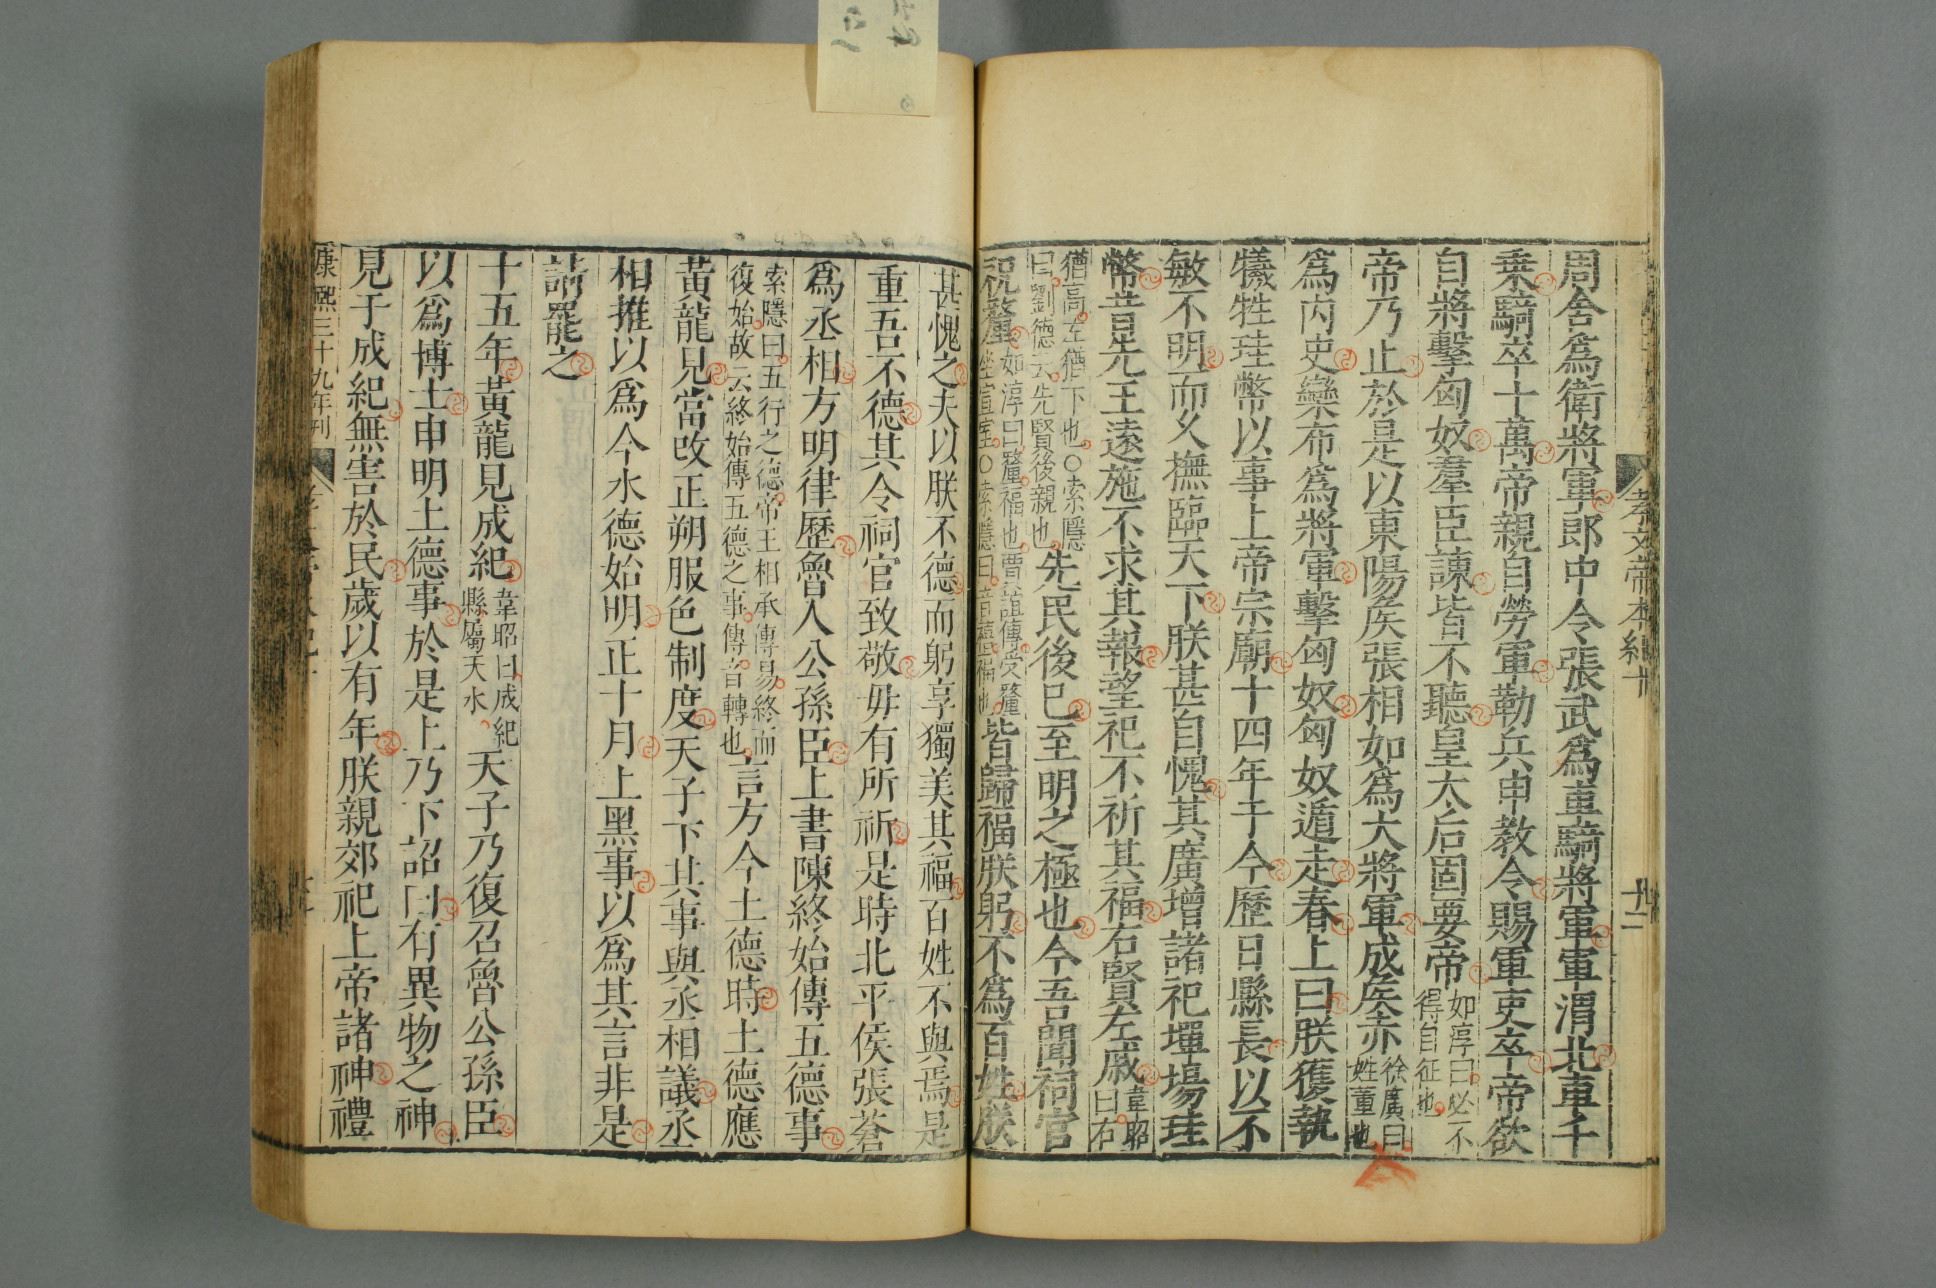 孝文帝本紀十
十二
周舍爲衛將軍郎中令張武爲車騎將軍軍渭北車千
乗騎卒十萬帝親自勞軍勒兵申教令賜軍吏卒帝欲
自將擊匈奴羣臣諫皆不聽皇太后固要帝如淳曰必不得自征也
帝乃止於是以東陽矦張相如爲大將軍成矦赤徐廣曰姓董也
爲內史欒布爲將軍擊匈奴匈奴遁走春上曰朕獲執
犧牲珪幣以事上帝宗廟十四年于今歷日縣長以不
敏不明而乆撫臨天下朕甚自愧其廣增諸祀墠場珪
幣昔先王遠施不求其報望祀不祈其福右賢左戚韋昭曰右
猶高左猶下也○索隱曰劉德云先賢後親也先民後巳至明之極也今吾聞祠官
祝釐如淳曰釐福也賈誼傳受釐坐宣室○索隱曰音禧福也皆歸福朕躬不爲百姓朕
甚愧之夫以朕不德而躬享獨美其福百姓不與焉是
重吾不德其令祠官致敬毋有所祈是時北平侯張蒼
爲丞相方明律歷魯人公孫臣上書陳終始傳五德事
索隱曰五行之德帝王相承傳易終而復始故云終始傳五德之事傳音轉也言方今土德時土德應
黃龍見當改正朔服色制度天子下其事與丞相議丞
相推以爲今水德始明正十月上黑事以爲其言非是
請罷之
十五年黃龍見成紀韋昭曰成紀縣屬天水天子乃復召魯公孫臣
以爲博士申明土德事於是上乃下詔曰有異物之神
見于成紀無害於民歲以有年朕親郊祀上帝諸神禮
康熙三十九年刊